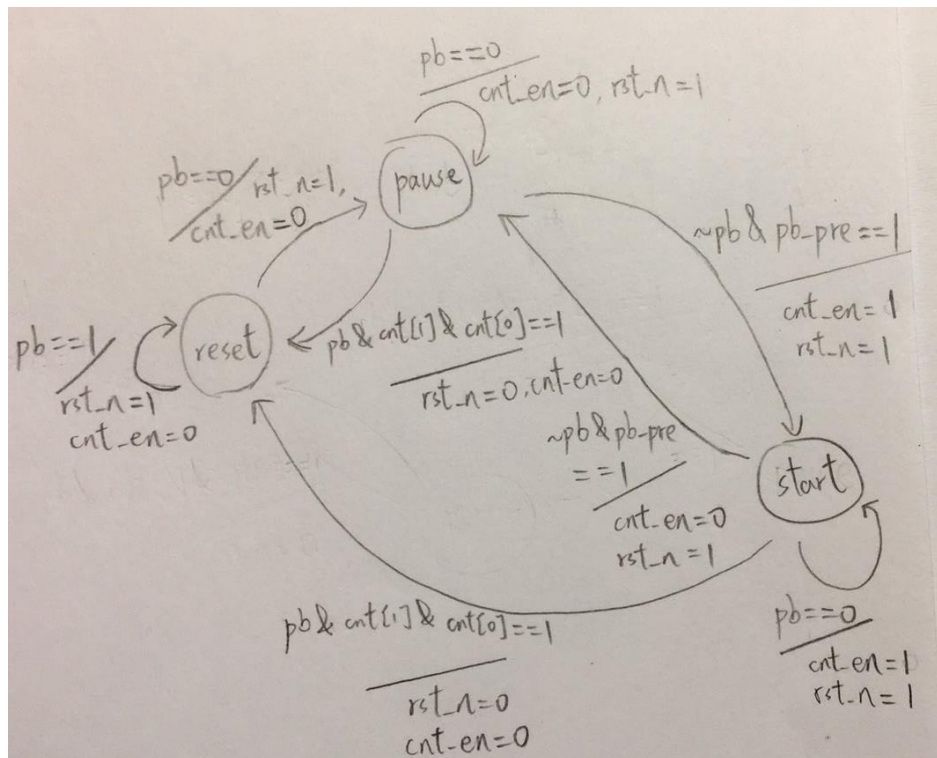 pb==0
cnt_en=0, rst_n=1
pb==0
rst_n=1,
cnt_en=0
pause
~pb & pb-pre==1
cnt_en=1
rst_n=1
pb==1
rst_n=1
cnt_en=0
reset
pb & cnt[1] & cnt[0]==1
rst_n=0, cnt-en=0
~pb & pb-pre
==1
cnt_en=0
rst_n=1
start
pb==0
cnt_en=1
rst_n=1
pb & cnt[1] & cnt[0]==1
rst_n=0
cnt-en=0